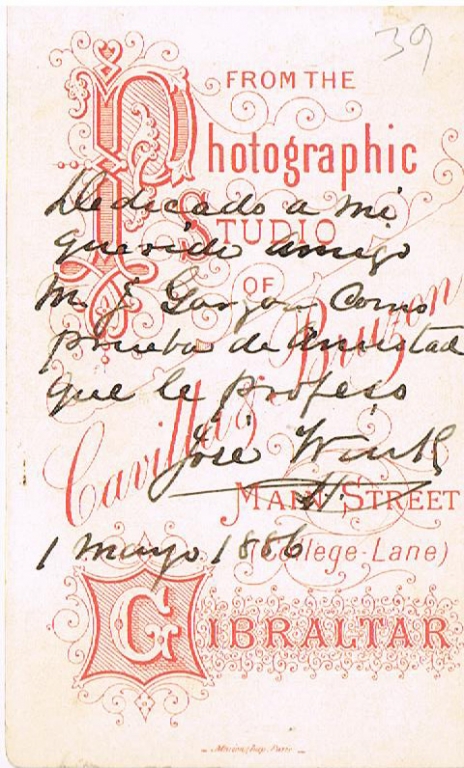 39
FROM THE
Photographic
Dedicado a mi
STUDIO
querido amigo
OF
M. J. Garzon Como
prueba de amistad
que le profeso
Cavilla & Bruzon
José
MAIN STREET
1 mayo 1886
(College-Lane)
GIBRALTAR